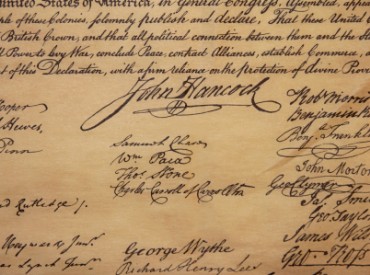 United States of America, in General Congress, Assembled, appealing
ple of these Colonies, solemnly publish and declare, That these United C
British Crown, and that all political connection between them and the Sta
Power to levy War, conclude Peace, contract Alliances, establish Commerce, a
t of this Declaration, with a firm reliance on the protection of divine Prov
John Hancock
ooper
Hewes,
Penn
Samuel Chase
Wm Paca
Thos Stone
Charles Carroll of Carrollton
Robt Morris
Benjamin R
Benj Franklin
John Morton
Geo Clymer
Jas Smi
Geo Taylo
James Wils
Geo Ross
Rutledge
Heyward Junr
Lynch Junr
George Wythe
Richard Henry Lee